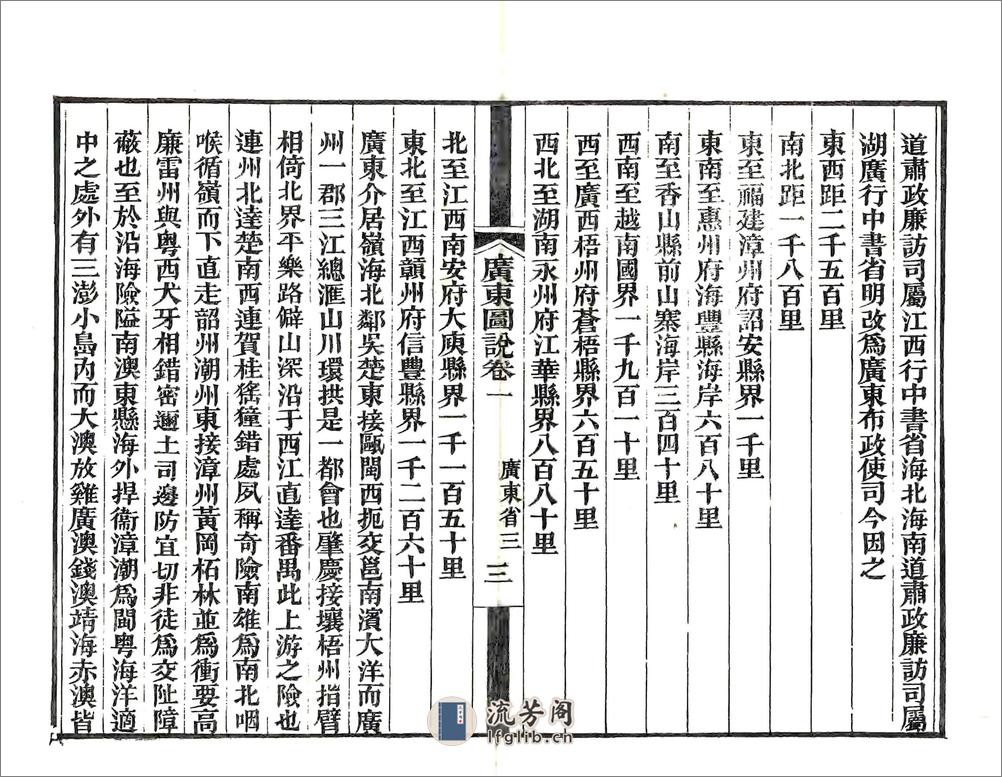 道肅政廉訪司屬江西行中書省海北海南道肅政廉訪司屬
湖廣行中書省明改爲廣東布政使司今因之
東西距二千五百里
南北距一千八百里
東至福建漳州府詔安縣界一千里
東南至惠州府海豐縣海岸六百八十里
南至香山縣前山寨海岸三百四十里
西南至越南國界一千九百一十里
西至廣西梧州府蒼梧縣界六百五十里
西北至湖南永州府江華縣界八百八十里
廣東圖說卷一 廣東省三 三
北至江西南安府大庾縣界一千一百五十里
東北至江西贛州府信豐縣界一千二百六十里
廣東介居嶺海北鄰吳楚東接甌閩西扼交邕南濱大洋而廣
州一郡三江總滙山川環拱是一都會也肇慶接壤梧州指臂
相倚北界平樂路僻山深沿于西江直達番禺此上游之險也
連州北達楚南西連賀桂猺獞錯處夙稱奇險南雄爲南北咽
喉循嶺而下直走韶州潮州東接漳州黃岡柘林並爲衝要高
廉雷州與粵西犬牙相錯密邇土司邊防宜切非徒爲交阯障
蔽也至於沿海險隘南澳東懸海外捍衞漳潮爲閩粵海洋適
中之處外有三澎小島內而大澳放雞廣澳錢澳靖海赤澳皆
流芳阁
lfglib.cn